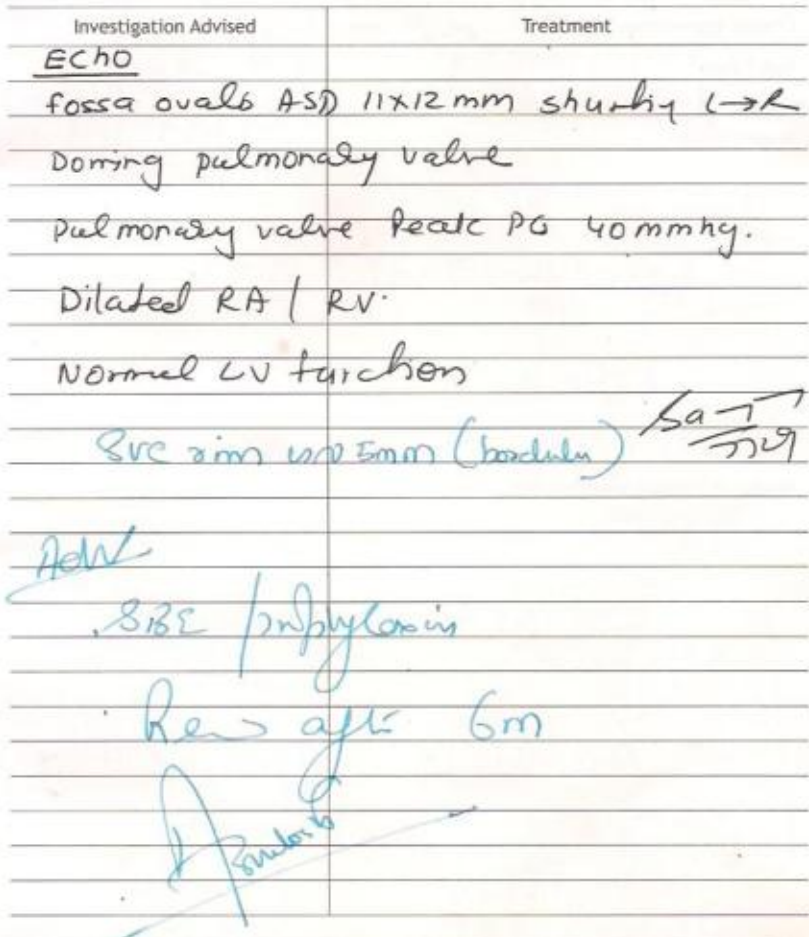 Investigation Advised Treatment
Echo
fossa ovalis ASD 11x12 mm shunting L→R
Doming pulmonary valve
pulmonary valve Peak PG 40 mmhg.
Dilated RA / RV.
Normal LV function
SVC rim 5mm
Adv
SBE prophylaxis
Rev after 6m